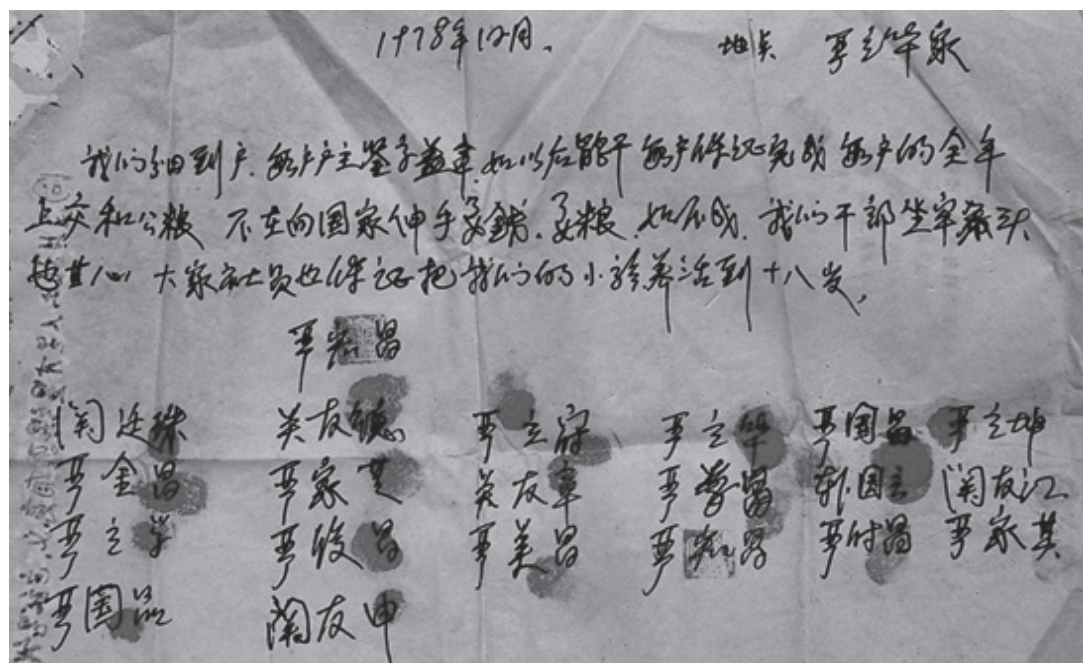 1978年12月。 地点 严立华家
我们分田到户.每户户主签字盖章.如以后能干每户保证完成每户的全年
上交和公粮 不在向国家伸手要钱.要粮.如不成.我们干部坐牢杀头
也甘心 大家社员也保证把我们的小孩养活到十八岁,
严宏昌
关廷珠 关友德 严立符 严立华 严国昌 严立坤
严金昌 严家芝 关友章 严学昌 韩国云 关友江
严立学 严俊昌 严美昌 严宏昌 严付昌 严家其
严国品 关友申